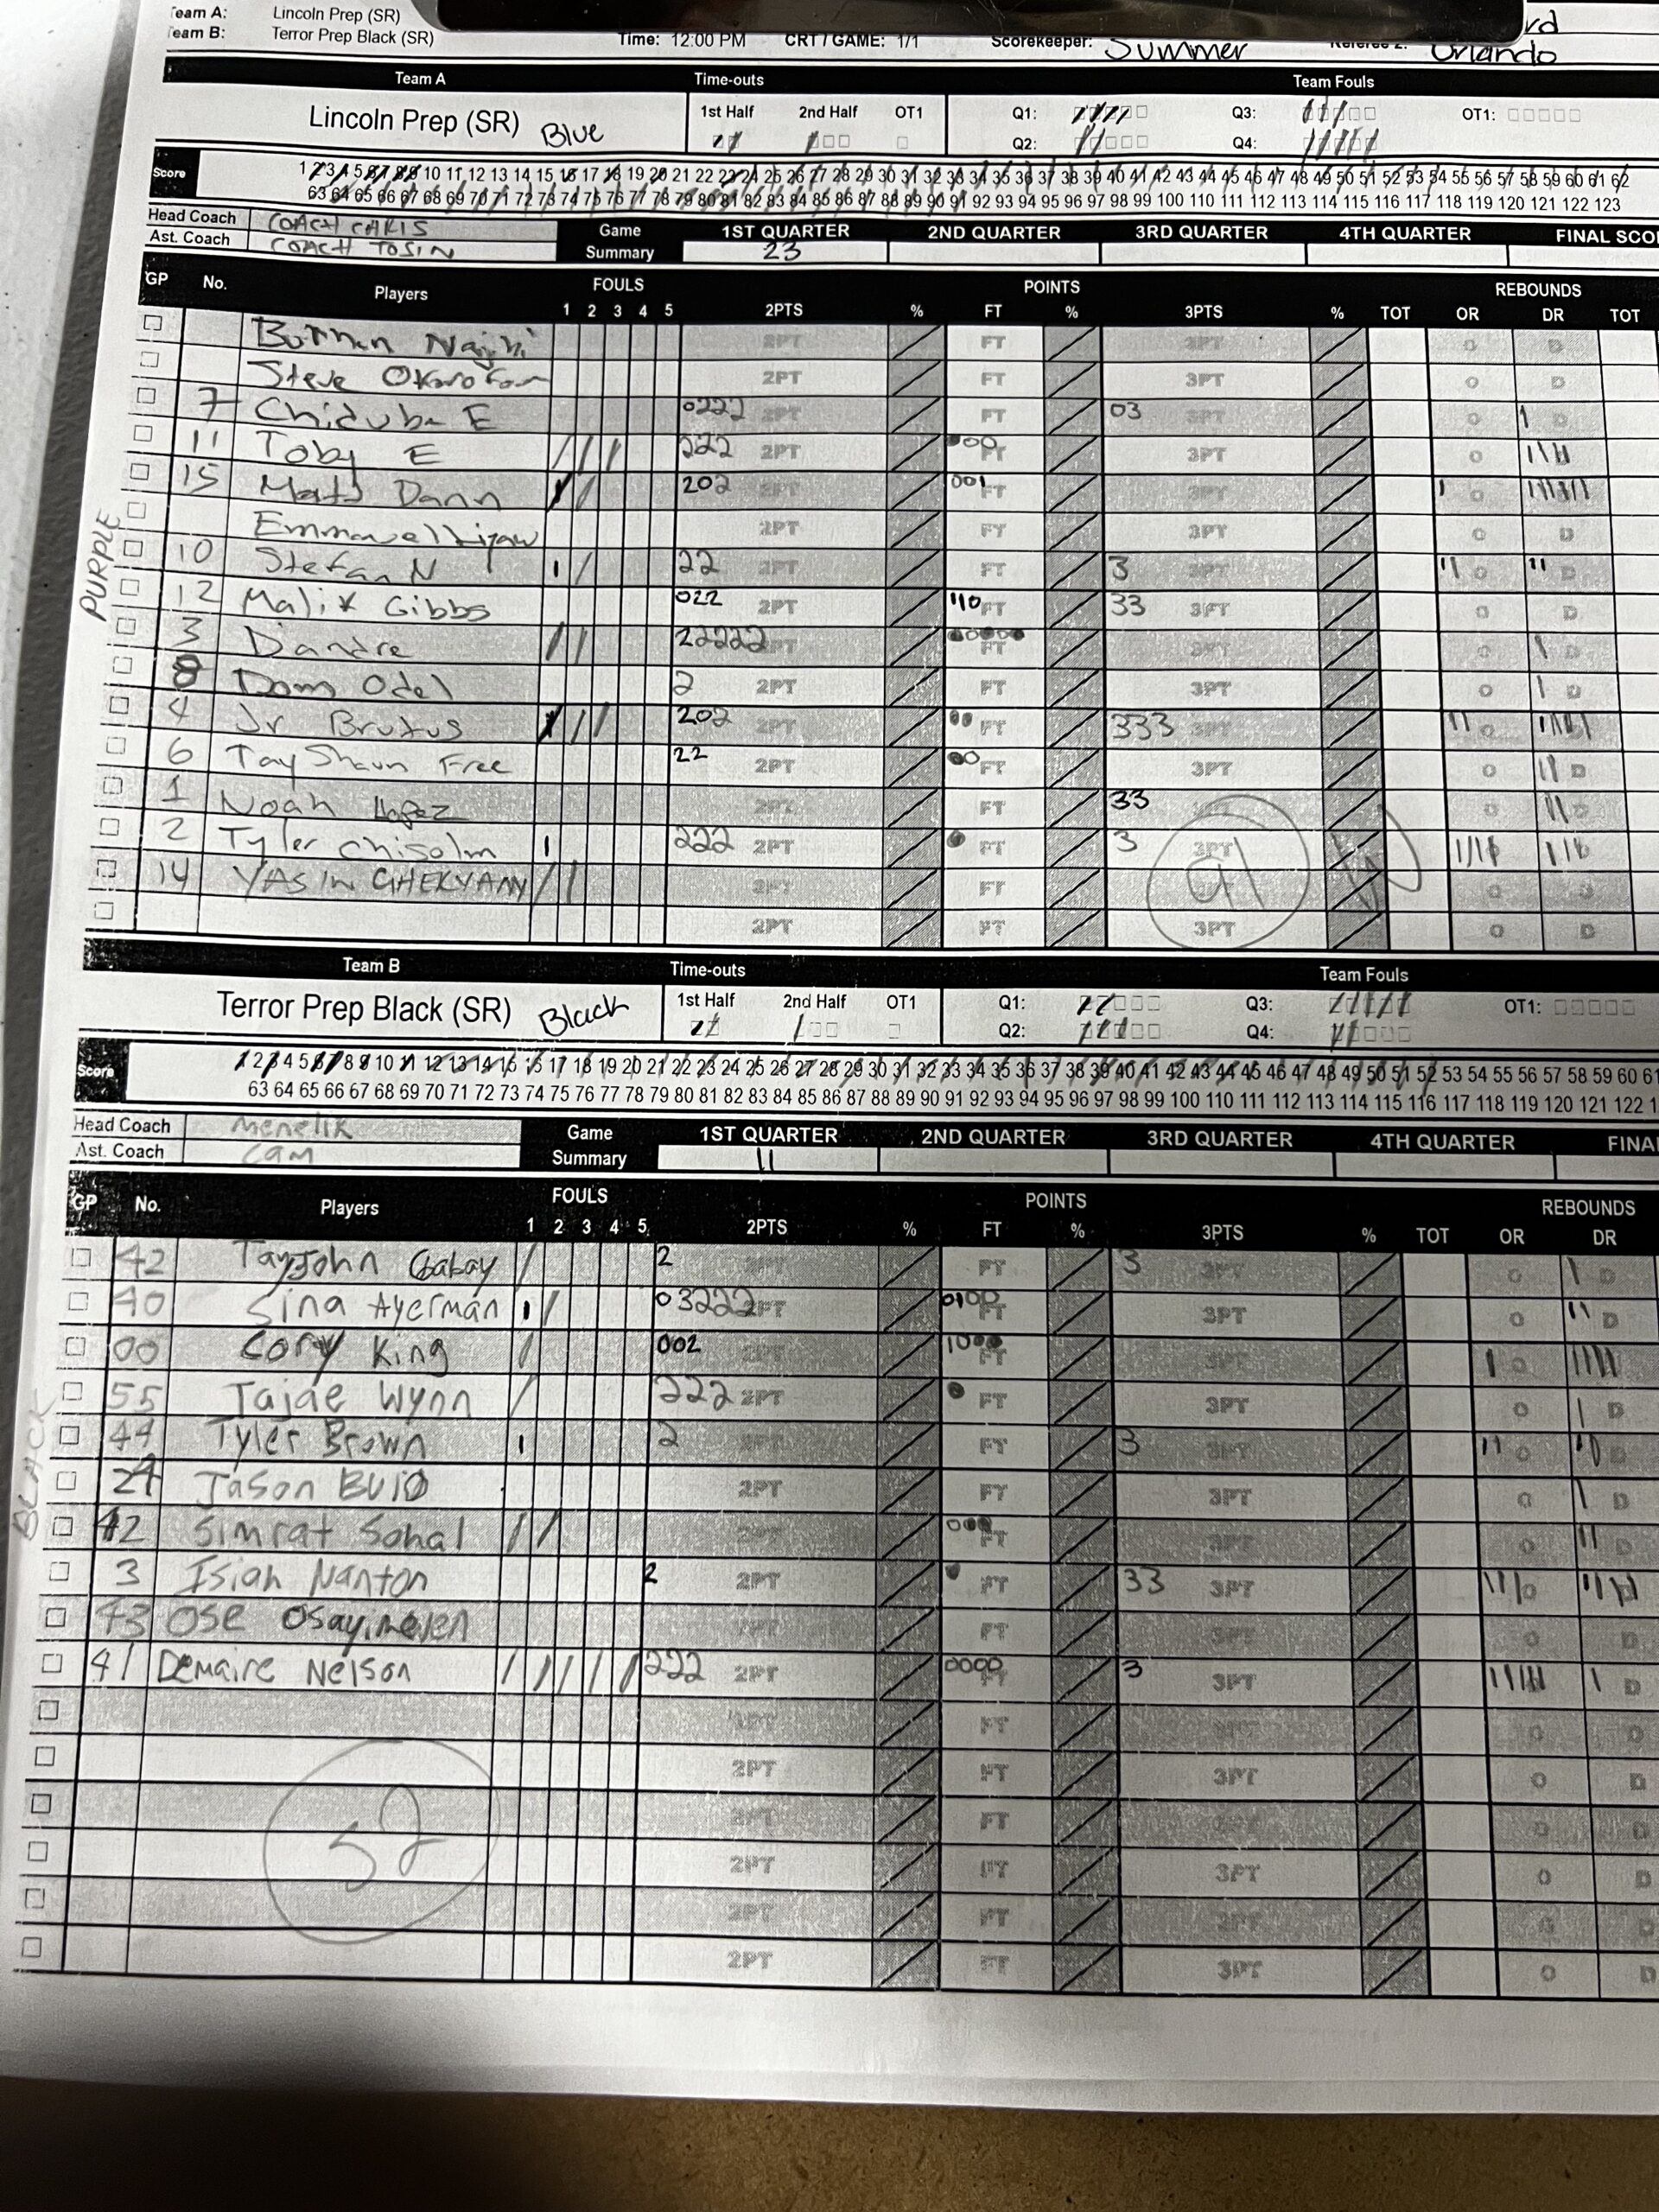 Team A: Lincoln Prep (SR)
Team B: Terror Prep Black (SR) Time: 12:00 PM CRT / GAME: 1/1 Scorekeeper: Summer Referee 2: Orlando
Team A Time-outs Team Fouls
Lincoln Prep (SR) Blue 1st Half 2nd Half OT1 Q1: Q3: OT1:
Q2: Q4:
Score 1 2 3 4 5 6 7 8 9 10 11 12 13 14 15 16 17 18 19 20 21 22 23 24 25 26 27 28 29 30 31 32 33 34 35 36 37 38 39 40 41 42 43 44 45 46 47 48 49 50 51 52 53 54 55 56 57 58 59 60 61 62
63 64 65 66 67 68 69 70 71 72 73 74 75 76 77 78 79 80 81 82 83 84 85 86 87 88 89 90 91 92 93 94 95 96 97 98 99 100 101 102 103 104 105 106 107 108 109 110 111 112 113 114 115 116 117 118 119 120 121 122 123
Head Coach COACH CHRIS Game 1ST QUARTER 2ND QUARTER 3RD QUARTER 4TH QUARTER FINAL SCO
Ast. Coach COACH TOSIN Summary 23
GP No. Players FOULS POINTS REBOUNDS
1 2 3 4 5 2PTS % FT % 3PTS % TOT OR DR TOT
2PT FT 3PT O D
Steve 2PT FT 3PT O D
7 Chidube E 0222 2PT FT 03 3PT O D
11 Toby E 222 2PT 00 FT 3PT O
15 Matt Dann 202 2PT 001 FT 3PT O
PURPLE
2PT FT 3PT O D
10 Stefan N 22 2PT FT 3 3PT O D
12 Malik Gibbs 022 2PT 110 FT 33 3PT O D
3 Dandre 22222 2PT FT 3PT O D
8 Dom Odel 2 2PT FT 3PT O D
4 Jr Brutus 202 2PT FT 333 3PT O
6 TayShaun Free 22 2PT FT 3PT O D
1 Noah Lopez 2PT FT 33 3PT O D
2 Tyler Chisolm 222 2PT FT 3 3PT
14 YASIN GHEKYANY 2PT FT 3PT O D
91
2PT FT 3PT O D
Team B Time-outs Team Fouls
Terror Prep Black (SR) Black 1st Half 2nd Half OT1 Q1: Q3: OT1:
Q2: Q4:
Score 1 2 3 4 5 6 7 8 9 10 11 12 13 14 15 16 17 18 19 20 21 22 23 24 25 26 27 28 29 30 31 32 33 34 35 36 37 38 39 40 41 42 43 44 45 46 47 48 49 50 51 52 53 54 55 56 57 58 59 60 61
63 64 65 66 67 68 69 70 71 72 73 74 75 76 77 78 79 80 81 82 83 84 85 86 87 88 89 90 91 92 93 94 95 96 97 98 99 100 101 102 103 104 105 106 107 108 109 110 111 112 113 114 115 116 117 118 119 120 121 122 1
Head Coach Menelik Game 1ST QUARTER 2ND QUARTER 3RD QUARTER 4TH QUARTER FINA
Ast. Coach Cam Summary 11
GP No. Players FOULS POINTS REBOUNDS
1 2 3 4 5 2PTS % FT % 3PTS % TOT OR DR
42 Tayjohn Gabay 2 2PT FT 3 3PT O D
40 Sina Ayerman 03222 2PT 0100 FT 3PT O D
00 Cory King 002 2PT 1000 FT 3PT O
55 Tajae Wynn 222 2PT FT 3PT O D
44 Tyler Brown 2 2PT FT 3 3PT O D
24 Jason BUIO 2PT FT 3PT O D
BLACK
12 Simrat Sohal 2PT FT 3PT O D
3 Isiah Nanton 2 2PT FT 33 3PT O
43 OSE Osayimewen 2PT FT 3PT O D
41 Demaire Nelson 222 2PT 0000 FT 3 3PT D
2PT FT 3PT O D
2PT FT 3PT O D
2PT FT 3PT O D
52
2PT FT 3PT O D
2PT FT 3PT O D
2PT FT 3PT O D